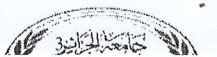 جامعة الجزائر